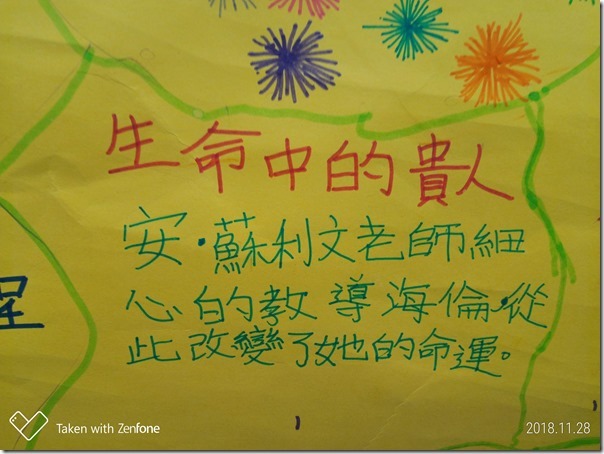 生命中的貴人
安・蘇利文老師細
心的教導海倫,從
此改變了她的命運。
程
Taken with Zenfone
2018.11.28